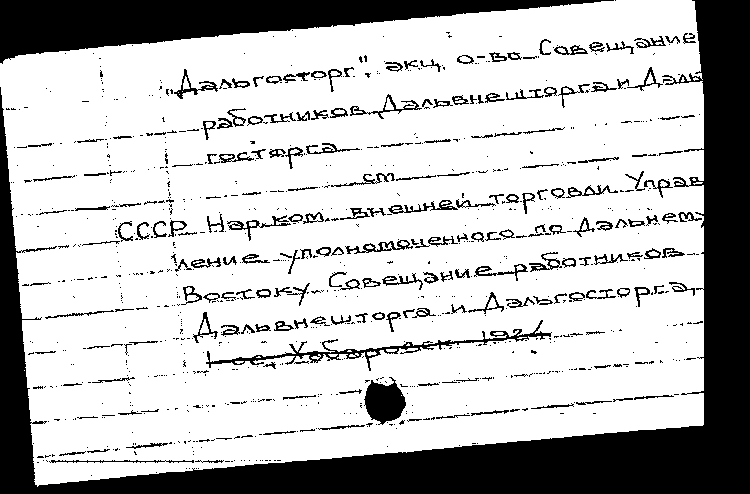 "Дальгосторг", акц. о-во Совещание
работников Дальвнешторга и Даль
госторга
см
СССР Нар.ком. внешней торговли Управ
ление уполномоченного по Дальнему
Востоку Совещание работников
Дальвнешторга и Дальгосторга,
1-ое, Хабаровск 1924